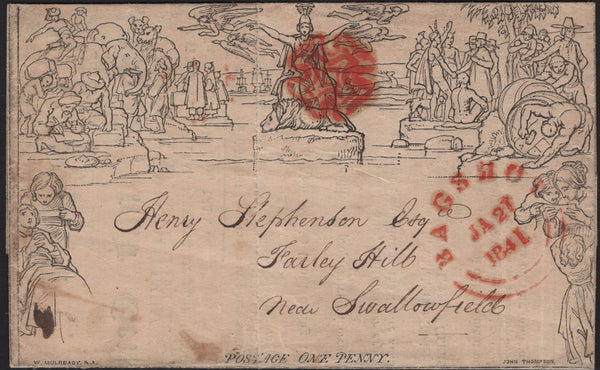 BAGSHO
JA 21
1841
Henry Stephenson Esqre
Farley Hill
near Swallowfield
POSTAGE ONE PENNY.
W. MULREADY, R.A.
JOHN THOMPSON